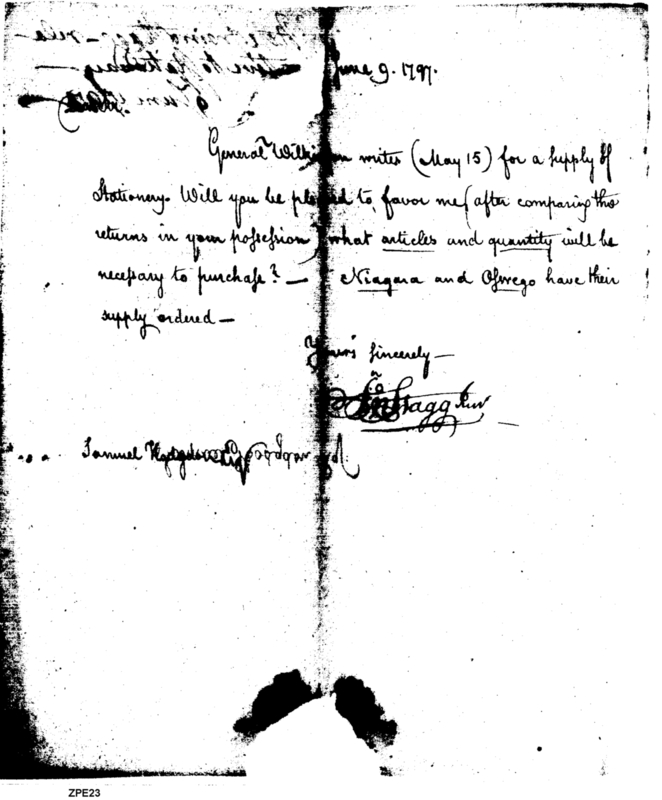 June 9. 1797.
General Wilkinson writes (May 15) for a supply of
Stationery. Will you be pleased to favor me (after comparing the
returns in your possession) what articles and quantity will be
necessary to purchase? — Niagara and Oswego have their
supply ordered —
Yours sincerely —
Jn Stagg Jun
Samuel Hodgdon Esq
ZPE23